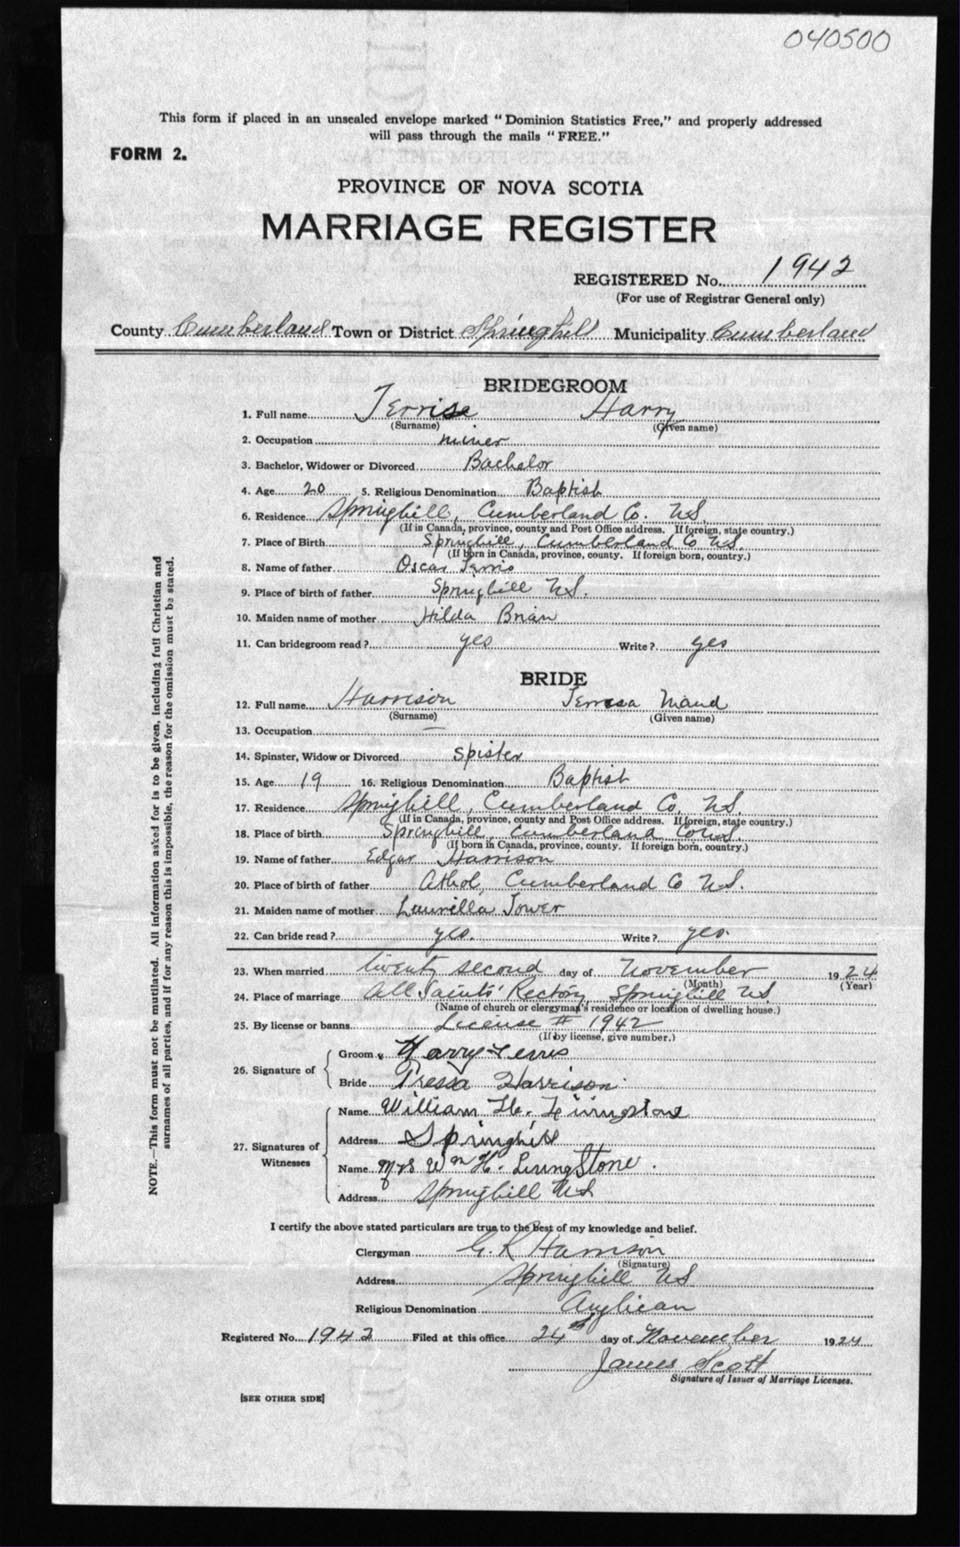 040500
This form if placed in an unsealed envelope marked "Dominion Statistics Free," and properly addressed
will pass through the mails "FREE."
FORM 2.
PROVINCE OF NOVA SCOTIA
MARRIAGE REGISTER
REGISTERED No. 1942
(For use of Registrar General only)
County Cumberland Town or District Springhill Municipality Cumberland
BRIDEGROOM
1. Full name Terrise Harry
(Surname) (Given name)
2. Occupation miner
3. Bachelor, Widower or Divorced Bachelor
4. Age 20 5. Religious Denomination Baptist
6. Residence Springhill, Cumberland Co. NS
(If in Canada, province, county and Post Office address. If foreign, state country.)
7. Place of Birth Springhill, Cumberland Co NS
(If born in Canada, province, county. If foreign born, country.)
8. Name of father Oscar Terris
9. Place of birth of father Springhill NS.
10. Maiden name of mother Hilda Brian
11. Can bridegroom read? yes Write? yes
BRIDE
12. Full name Harrison Terresa Maud
(Surname) (Given name)
13. Occupation —
14. Spinster, Widow or Divorced Spister
15. Age 19 16. Religious Denomination Baptist
17. Residence Springhill, Cumberland Co, NS.
(If in Canada, province, county and Post Office address. If foreign, state country.)
18. Place of birth Springhill, Cumberland Co NS.
(If born in Canada, province, county. If foreign born, country.)
19. Name of father Edgar Harrison
20. Place of birth of father Athol, Cumberland Co NS.
21. Maiden name of mother Laurilla Tower
22. Can bride read? yes. Write? yes.
23. When married twenty second day of November 1924
(Month) (Year)
24. Place of marriage All Saints' Rectory, Springhill NS
(Name of church or clergyman's residence or location of dwelling house.)
25. By license or banns License # 1942
(If by license, give number.)
26. Signature of
Groom Harry Terris
Bride Tressa Harrison
27. Signatures of Witnesses
Name William H. Livingstone
Address Springhill
Name Mrs Wm H. LivingStone.
Address Springhill NS
I certify the above stated particulars are true to the best of my knowledge and belief.
Clergyman G. K Harrison
(Signature)
Address Springhill NS
Religious Denomination Anglican
Registered No. 1942 Filed at this office 24th day of November 1924
James Scott
Signature of Issuer of Marriage Licenses.
[SEE OTHER SIDE]
NOTE.—This form must not be mutilated. All information asked for is to be given, including full Christian and
surnames of all parties, and if for any reason this is impossible, the reason for the omission must be stated.